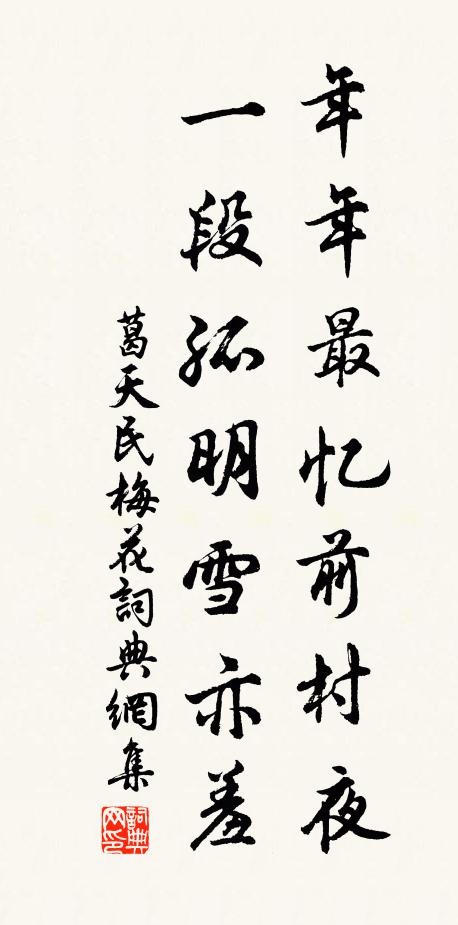 年年最忆前村夜
一段孤明雪亦羞
葛天民梅花詞典網集
詞典网印